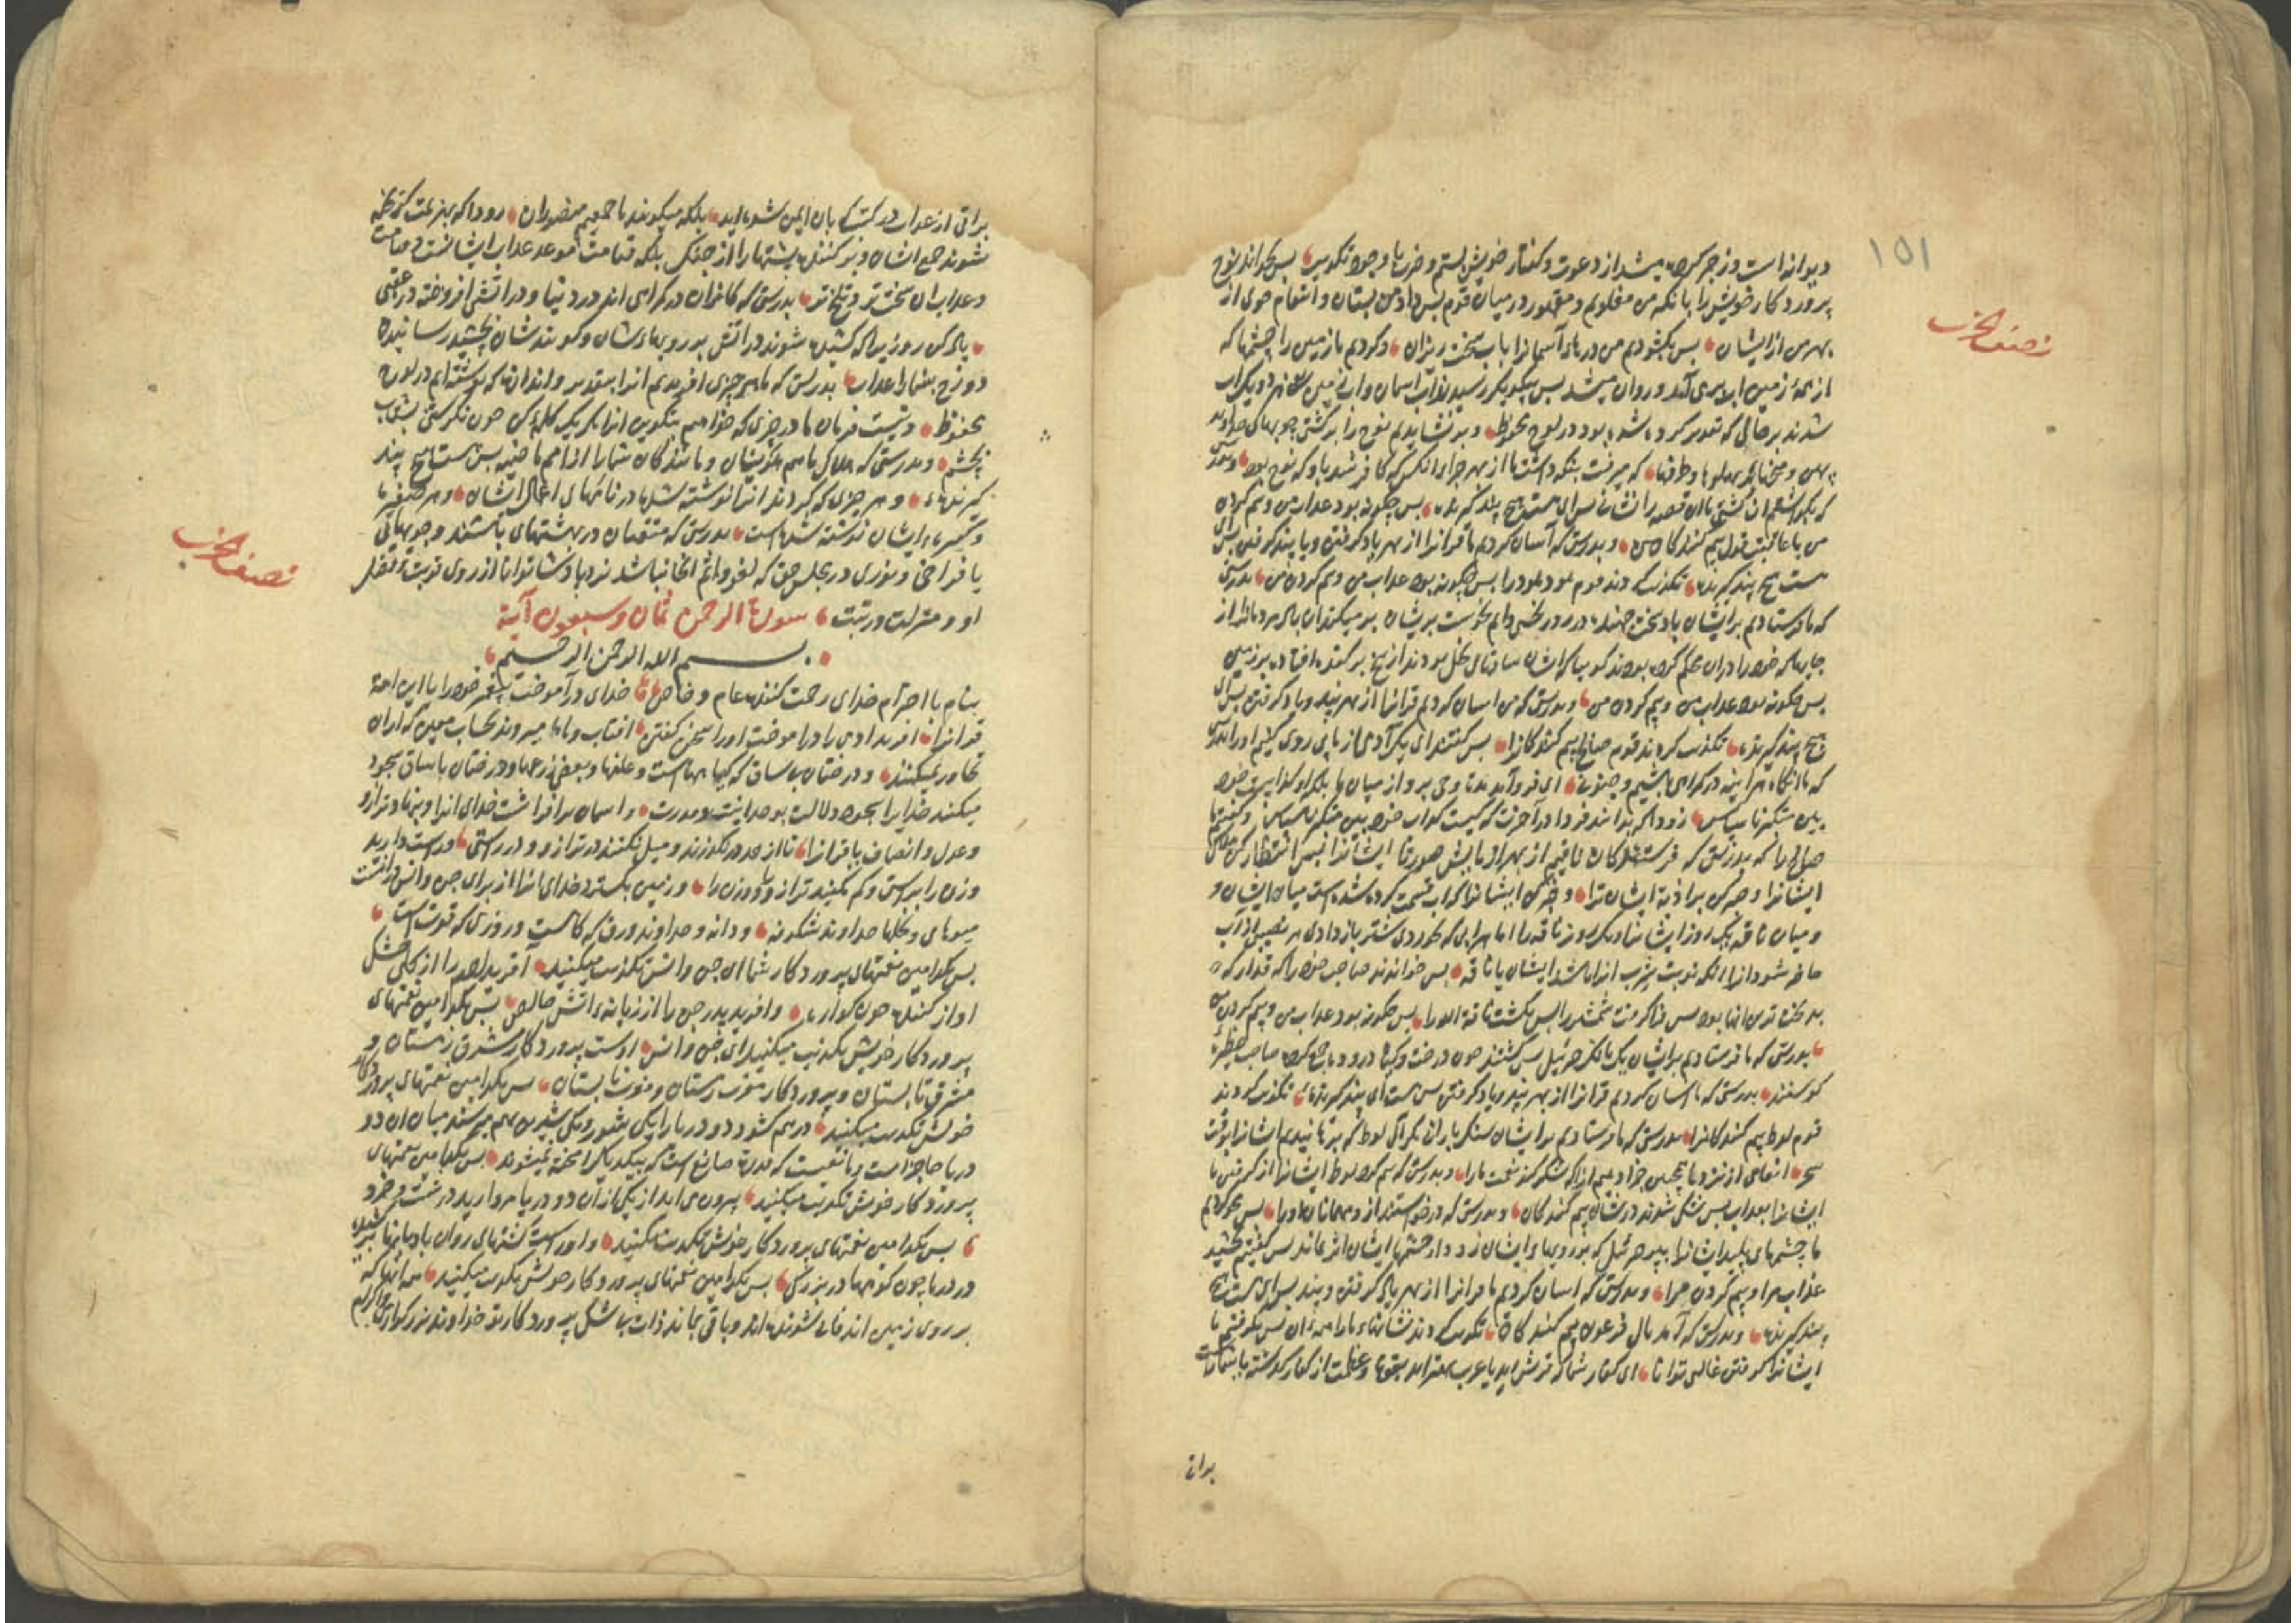 ۱۵۱
نصف الحزب
دیوانه است و زجر کرده میشد از دعوت و گفتار خویش بشتم و ضربها و جود تکذیب پس بخواند نوح
پروردکار خویش را بانکه من مغلوبم و مقهور در میان قوم پس داد من بستان و انتقام
بهر من از ایشان پس بکشودیم من درهای آسمانرا باب سخت ریزان و کردیم باز زمین را چشمها که
از همه زمین اب می آمد و روان میشد پس بیکدیکر رسیدند آب اسمان و اب زمین
شدند بر حالی که تقدیر کرده شده بود در لوح محفوظ و بر نشاندیم نوح را بر کشتی چوبهای خداوند
که میرفت بنکه داشت ما از بهر جزای انکس که کافر شد باو که نوح بود
ان کشتی یا ان قصه را نشانی پس ای هست هیچ پند کیرنده پس چکونه بود عذاب من و بیم کردن
من با عاقبت قول بیم کنندکان من و بدرستی که آسان کردیم ما قرانرا از بهر یاد کرفتن و یا پند کرفتن پس
هست هیچ پند کیرنده تکذیب کردند قوم هود هود را پس چکونه بود عذاب من و بیم کردن من بدرستی
که ما فرستادیم بر ایشان باد سخت جهنده در روز نحسی دایم نحوست بر ایشان بر میکند ان باد مردمانرا از
جایها که خود را در ان محکم کرده بودند کویا که ایشان ساقهای نخل بودند از بیخ بر کنده افتاده بر زمین
پس چکونه بود عذاب من و بیم کردن من و بدرستی که من اسان کردیم قرانرا از بهر پند و یاد کرفتن پس ای
هیچ پند کیرنده تکذیب کردند قوم صالح بیم کنندکانرا پس کفتند ای یک آدمی از ما پی روی کنیم او را بدرستی
که ما انکاه هراینه در کمراهی باشیم و جنون ای فرو آمد وحی برو از میان ما بلکه او کذابست خود
بین متکبر ناسپاس زود که بدانند فردا در آخرت که کیست کذاب خود بین متکبر ناسپاس و کفتیم ما
صالح را که بدرستی که فرستندکان ناقیم از بهر ازمایش صورتا ایشانرا پس انتظار کن
ایشانرا و صبر کن بر اذیة ایشان ترا و خبر کن ایشانرا که اب قسمت کرده شده است میان ایشان و
میان ناقه یک روز ایشانرا و یک روز ناقه را اما هر ابی که بخوردی شتر باز دادی هر نصیبی از آب
حاضر شود انرا انکه نوبت شرب انرا باشد ایشان یا ناقه پس خواندند صاحب خود را که قدار که
بدبخت ترین انها بود پس فرا کرفت شمشیر را پس بکشت ناقة الله را پس چکونه بود عذاب من و بیم کردن من
بدرستی که ما فرستادیم بر ایشان یک بانک جبرئیل پس کشتند چون درخت و کیاه درود جمع کرده صاحب حظیره
کوسفند بدرستی که ما اسان کردیم قرانرا از بهر پند و یاد کرفتن پس هست ای پند کیرنده تکذیب کردند
قوم لوط بیم کنندکانرا بدرستی که ما فرستادیم بر ایشان سنک باران مکر آل لوط که برهانیدیم ایشانرا بوقت
سحر انعامی از نزد ما همچنین جزا دهیم انرا که شکر کند نعمت ما را و بدرستی که بیم کرد لوط ایشانرا از کرفتن ما
ایشانرا بعذاب پس بشک شدند در شان بیم کنندکان و بدرستی که درخواستند از و مهمانان او را پس محو کردیم
ما چشمهای پلید ایشانرا به پر جبرئیل که بر رویهای ایشان زد و از چشمها ایشان اثر نماند پس کفتیم بچشید
عذاب مرا و بیم کردن مرا و بدرستی که اسان کردیم ما قرانرا از بهر یاد کرفتن و پند پس ای هست هیچ
پند کیرنده و بدرستی که آمد بآل فرعون بیم کنندکان تکذیب کردند نشانهاء ما را همه ان پس بکرفتیم ما
ایشانرا کرفتن غالب توانا ای کفار شما که قریش اید یا عرب بهتر اید بقوة و عظمت از کفار کذشته یا شماراست
براة
براتی از عذاب در کتابهای بان ایمن شده اید بلکه میکویند ما جمعیم منصوران زود که بهزیمت کرفته
شوند جمع ایشان و بر کنند پشتها را از جنک بلکه قیامت موعد عذاب ایشانست و قیامت
و عذاب ان سخت تر و تلخ تر بدرستی که کافران در کمراهی اند در دنیا و در آتش افروخته در عقبی
یاد کن روزیرا که کشیده شوند در اتش بر رویهاء شان و کویند شان بچشید رسانیدن
دوزخ بشما را عذاب بدرستی که ما هر چیزی افریدیم انرا بتقدیر و اندازه که نوشته ایم در لوح
محفوظ و نیست فرمان ما در چیزی که خواهیم بتکوین انرا مکر یک کلمه کن چون نکریستنی بشتاب
بچشم و بدرستی که هلاک ما هم کیشان و مانندکان شما را از امم ماضیه پس هست هیچ پند
کیرنده و هر چیزی که کردند انرا نوشته شده در نامهای اعمال ایشان و هر صغیره
و کبیرهاء ایشان نوشته شده است بدرستی که متقیان در بهشتهای باشند و جویهائی
با فراخی و نوری در مجلس حق که لغو و اثم انجا نباشد نزد پادشاه توانا از روی قربت و فضل
او و منزلت و رتبت سورة الرحمن ثمان و سبعون آیة
بسم الله الرحمن الرحیم
بنام با احترام خدای رحمت کننده عام و خاص خدای در آموخت پیغمبر خود را با این امة
قرانرا افرید ادمی را در اموخت او را سخن کفتن افتاب و ماه میروند بحساب معین که از ان
تجاوز نمیکنند و درختان بی ساق که کیاهها است و علفها و بعضی زرعها و درختان با ساق سجود
میکنند خدایرا بسجود دلالت بوحدانیت و قدرت و اسمان برافراشت خدای انرا و بنهاد ترازو
و عدل و انصاف یا قرانرا تا از حد در نکذرند و میل نکنند در ترازو و در راستی و راست دارید
وزن را براستی و کم نکنید ترازو و وزن را و زمین بکسترد خدای انرا از برای جن و انس در انست
میوهای و نخلها خداوند شکوفه و دانه و خداوند ورق که کاهست و روزی که قوت است
پس بکدامین نعمتهای پروردکار شما ای جن و انس تکذیب میکنید آفرید ادم را از کلی خشک
اواز کننده چون کواره و افرید پدر جن را از زبانهء اتش خالص پس بکدامین نعمتهای
پروردکار خویش تکذیب میکنید ای جن و انس اوست پروردکار مشرق زمستان و
مشرق تابستان و پروردکار مغرب زمستان و مغرب تابستان پس بکدامین نعمتهای پروردکار
خویش تکذیب میکنید درهم کشود دو دریا را یکی شور و یکی شیرین بهم میرسند میان ان دو
دریا حاجز است و مانعیست که قدرة صانع است که بیکدیکر امیخته نمیشوند پس بکدامین نعمتهای
پروردکار خویش تکذیب میکنید بیرون می اید از یکی از آن دو دریا مروارید درشت و خرد
پس بکدامین نعمتهای پروردکار خویش تکذیب میکنید و اوراست کشتیهای روان بادبانها
در دریا چون کوهها در بزرکی پس بکدامین نعمتهای پروردکار خویش تکذیب میکنید همه انها که
بر روی زمین اند فانی شونده اند و باقی بماند ذات بی شکل پروردکار تو خداوند بزرکواری و اکرام
نصف الحزب